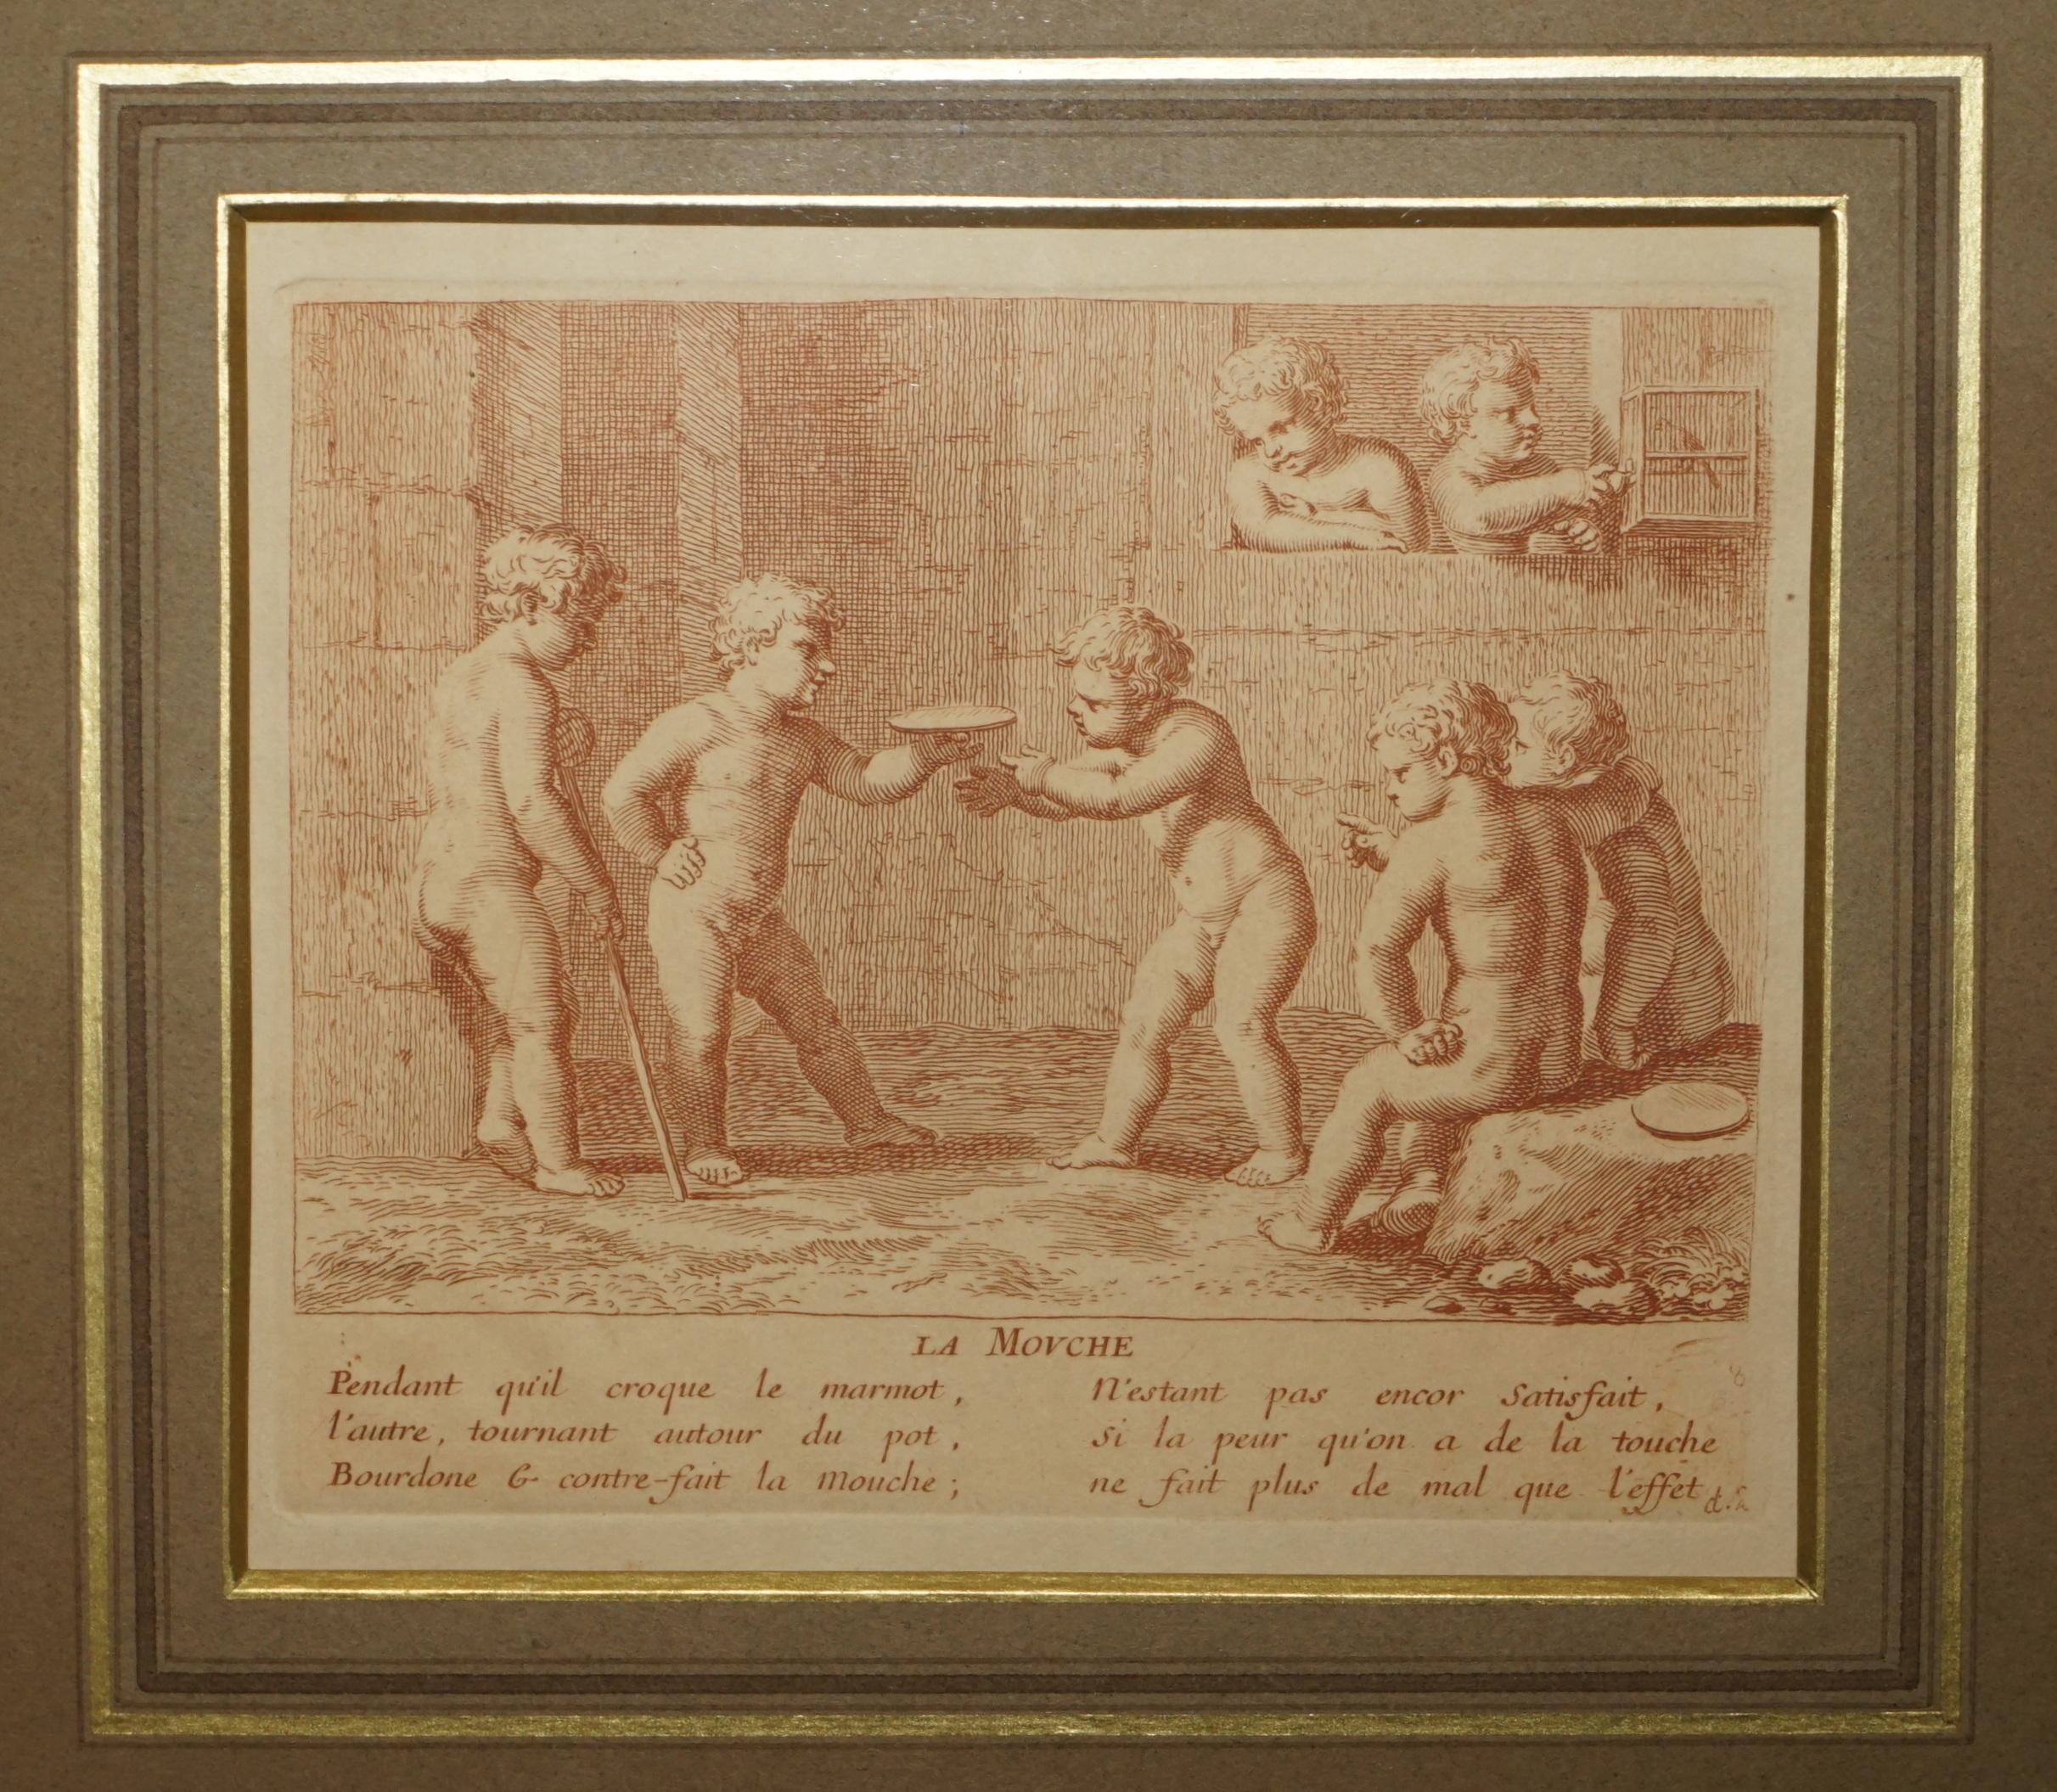 LA MOVCHE
Pendant qu'il croque le marmot,
l'autre, tournant autour du pot,
Bourdone & contre-fait la mouche;
N'estant pas encor Satisfait,
si la peur qu'on a de la touche
ne fait plus de mal que l'effet